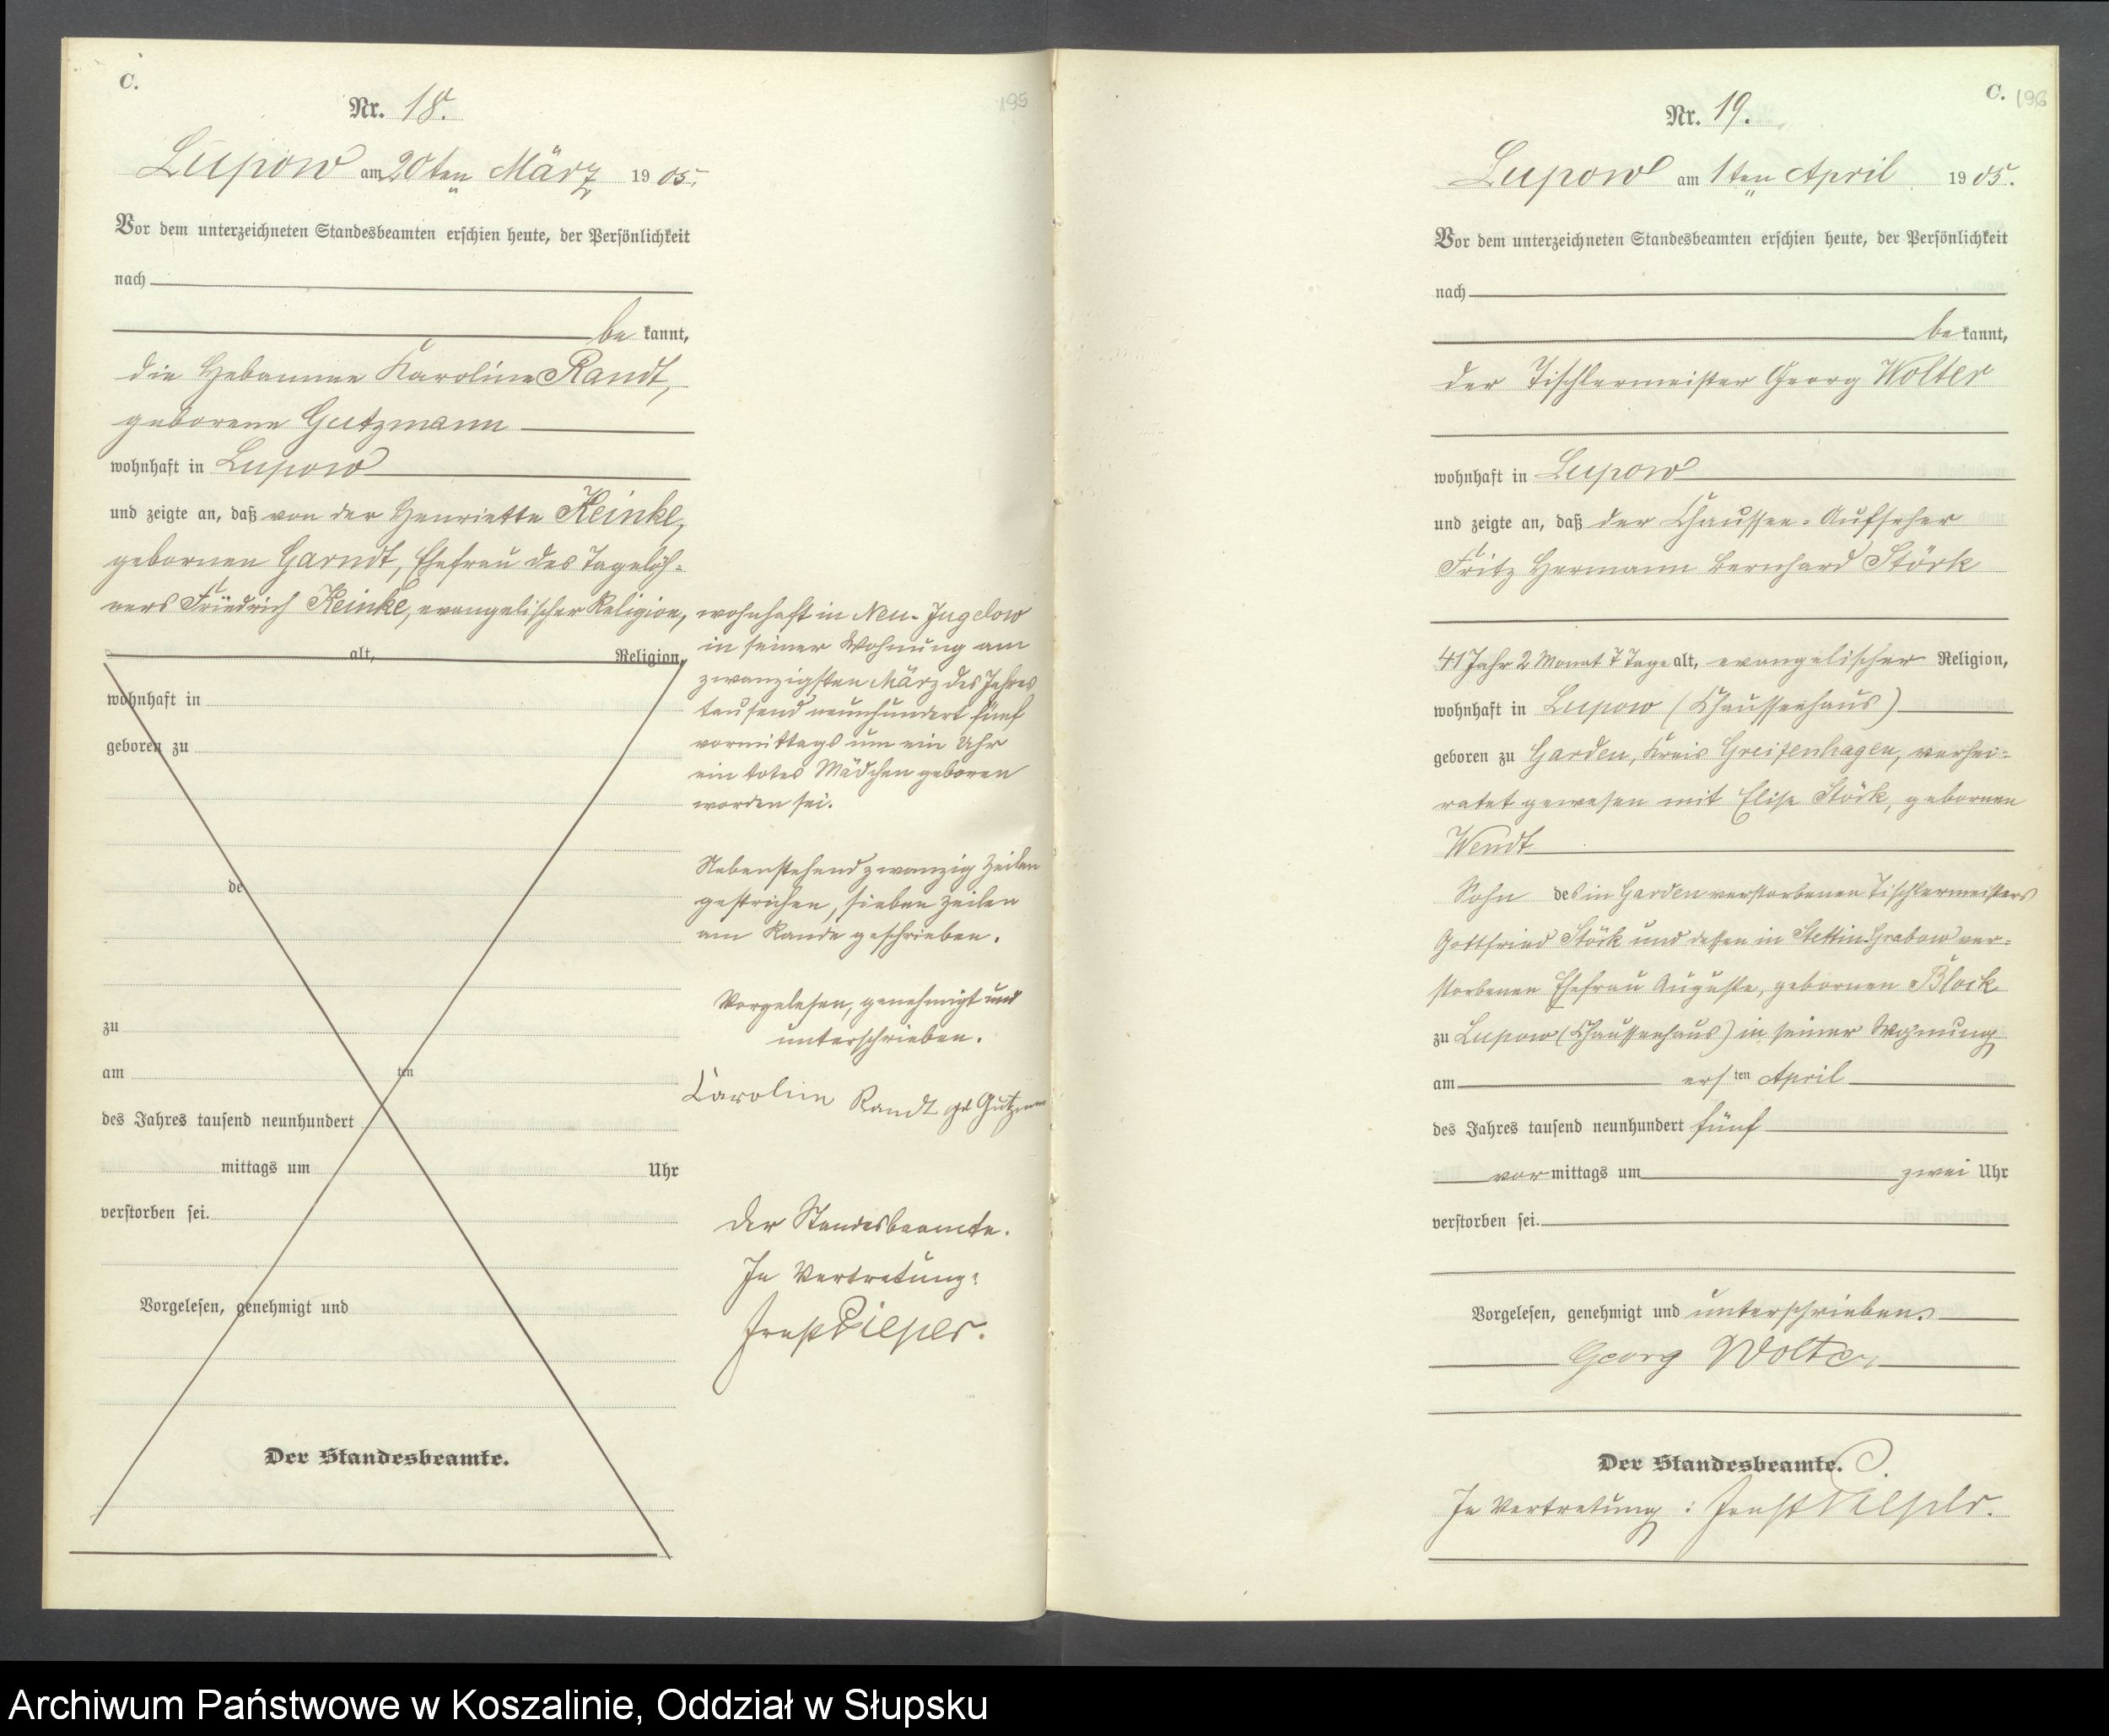 C.
Nr. 18.
195
Lupow am 20ten März 1905.
Vor dem unterzeichneten Standesbeamten erschien heute, der Persönlichkeit
nach
be kannt,
die Hebamme Karoline Randt,
geborene Gutzmann
wohnhaft in Lupow
und zeigte an, daß von der Henriette Reinke,
gebornen Garndt, Ehefrau des Tagelöh-
ners Friedrich Reinke, evangelischer Religion,
alt, Religion,
wohnhaft in
geboren zu
de
zu
am ten
des Jahres tausend neunhundert
mittags um Uhr
verstorben sei.
Vorgelesen, genehmigt und
Der Standesbeamte.
wohnhaft in Neu-Jugelow
in seiner Wohnung am
zwanzigsten März des Jahres
tausend neunhundert fünf
vormittags um ein Uhr
ein totes Mädchen geboren
worden sei.
Nebenstehend zwanzig Zeilen
gestrichen, sieben Zeilen
am Rande geschrieben.
Vorgelesen, genehmigt und
unterschrieben.
Carolin Randt gb Gutzmann
Der Standesbeamte.
In Vertretung:
Ernst Pieper.
C. 196
Nr. 19.
Lupow am 1ten April 1905.
Vor dem unterzeichneten Standesbeamten erschien heute, der Persönlichkeit
nach
be kannt,
der Tischlermeister Georg Wolter
wohnhaft in Lupow
und zeigte an, daß der Chaussee-Aufseher
Fritz Hermann Bernhard Störk
41 Jahr 2 Monat 7 Tage alt, evangelischer Religion,
wohnhaft in Lupow (Chausseehaus)
geboren zu Garden, Kreis Greifenhagen, verhei-
ratet gewesen mit Elise Störk, gebornen
Wendt
Sohn des in Garden verstorbenen Tischlermeisters
Gottfried Störk und dessen in Stettin-Grabow ver-
storbenen Ehefrau Auguste, gebornen Block
zu Lupow (Chausseehaus) in seiner Wohnung
am ersten April
des Jahres tausend neunhundert fünf
vor mittags um zwei Uhr
verstorben sei.
Vorgelesen, genehmigt und unterschrieben.
Georg Wolter
Der Standesbeamte.
In Vertretung: Ernst Pieper.
Archiwum Państwowe w Koszalinie, Oddział w Słupsku